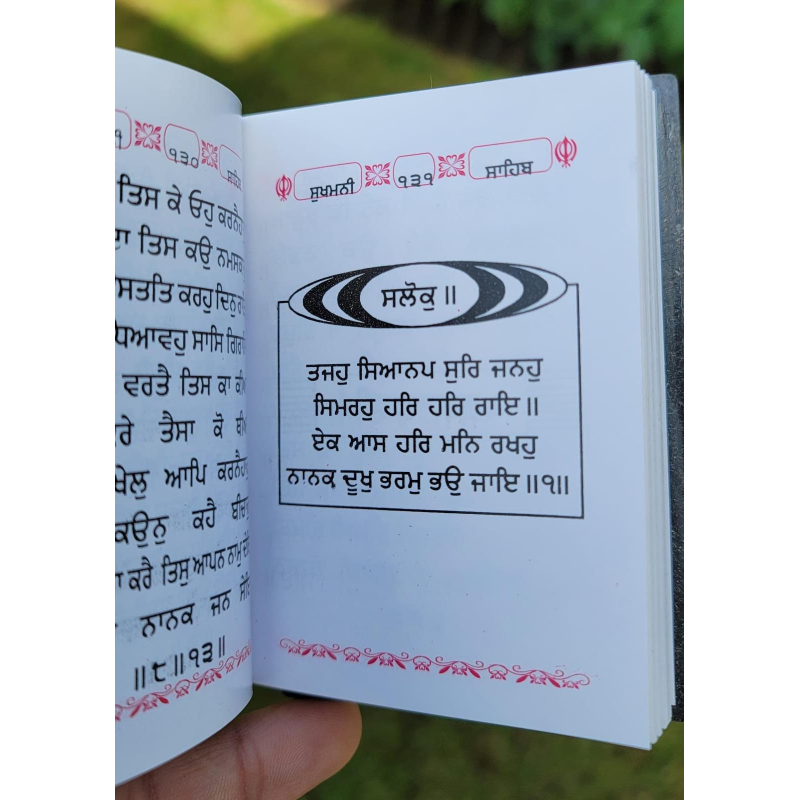 ੧੩੦
ਤਿਸ ਕੇ ਓਹੁ
ਤਿਸ ਕਉ
ਕਰਹੁ ਦਿਨੁ
ਸਾਸਿ
ਵਰਤੈ ਤਿਸ ਕਾ
ਤੈਸਾ ਕੋ
ਖੇਲੁ ਆਪਿ
ਕਉਨੁ ਕਹੈ
ਕਰੈ ਤਿਸੁ ਆਪਨ ਨਾਮੁ
ਨਾਨਕ ਜਨ
॥੮॥੧੩॥
ਸੁਖਮਨੀ ੧੩੧ ਸਾਹਿਬ
ਸਲੋਕੁ ॥
ਤਜਹੁ ਸਿਆਨਪ ਸੁਰਿ ਜਨਹੁ
ਸਿਮਰਹੁ ਹਰਿ ਹਰਿ ਰਾਇ ॥
ਏਕ ਆਸ ਹਰਿ ਮਨਿ ਰਖਹੁ
ਨਾਨਕ ਦੂਖੁ ਭਰਮੁ ਭਉ ਜਾਇ ॥੧॥